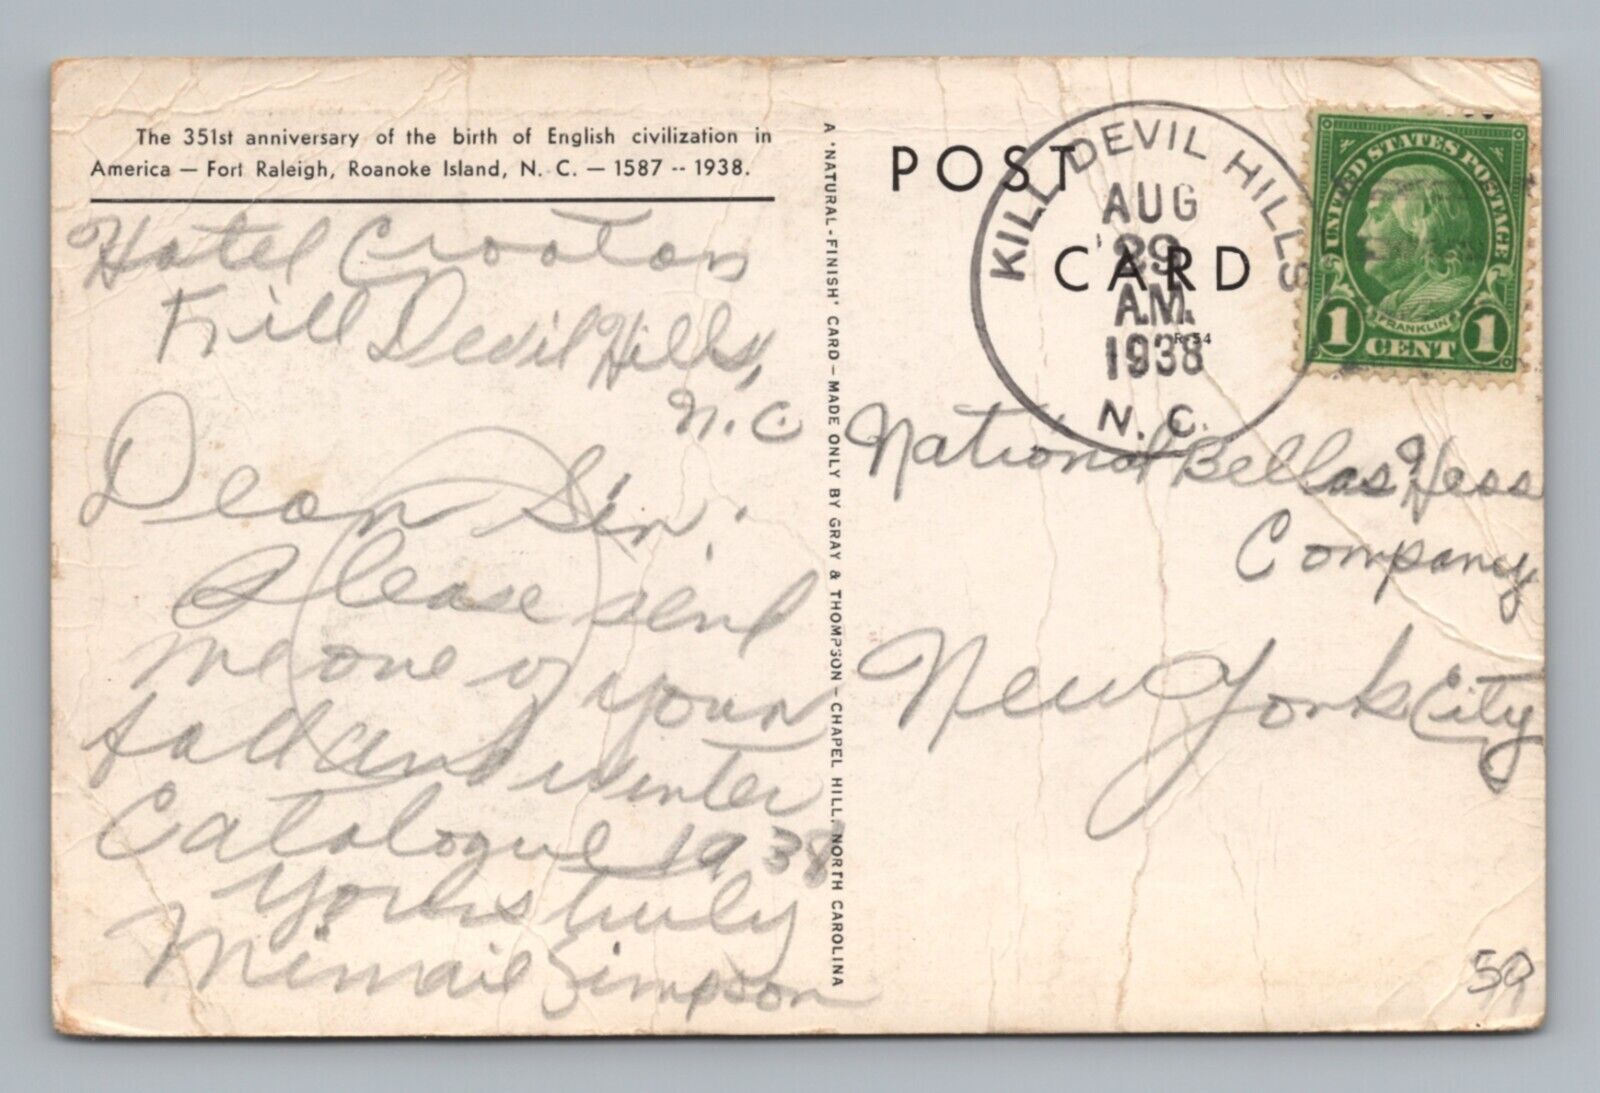 The 351st anniversary of the birth of English civilization in
America — Fort Raleigh, Roanoke Island, N. C. — 1587 -- 1938.
Hotel Croatan
Kill Devil Hills,
N.C
Dear Sir,
Please send
me one of your
fall and winter
Catalogue 1938
Yours truly
Simpson
A 'NATURAL-FINISH' CARD—MADE ONLY BY GRAY & THOMPSON—CHAPEL HILL, NORTH CAROLINA
POST CARD
R-54
KILL DEVIL HILLS
AUG
29
A.M.
1938
N. C.
UNITED STATES POSTAGE
FRANKLIN
1 CENT 1
National Bellas Hess
Company
New York City
50